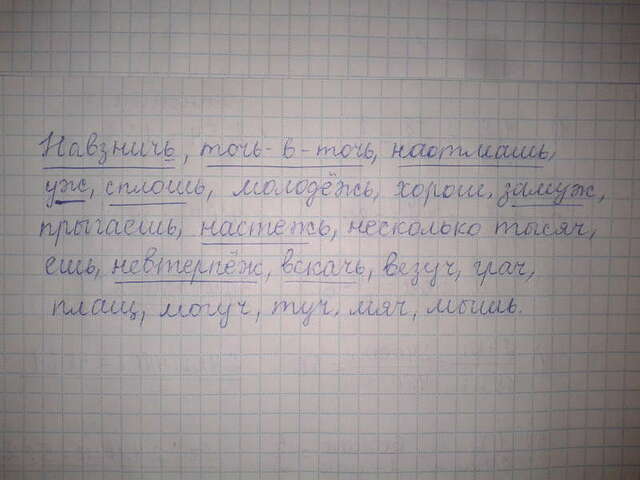 Навзничь, точь-в-точь, наотмашь,
уж, сплошь, молодёжь, хорош, замуж,
прыгаешь, настежь, несколько тысяч,
ешь, невтерпёж, вскачь, везуч, грач,
плащ, могуч, туч, мяч, мышь.